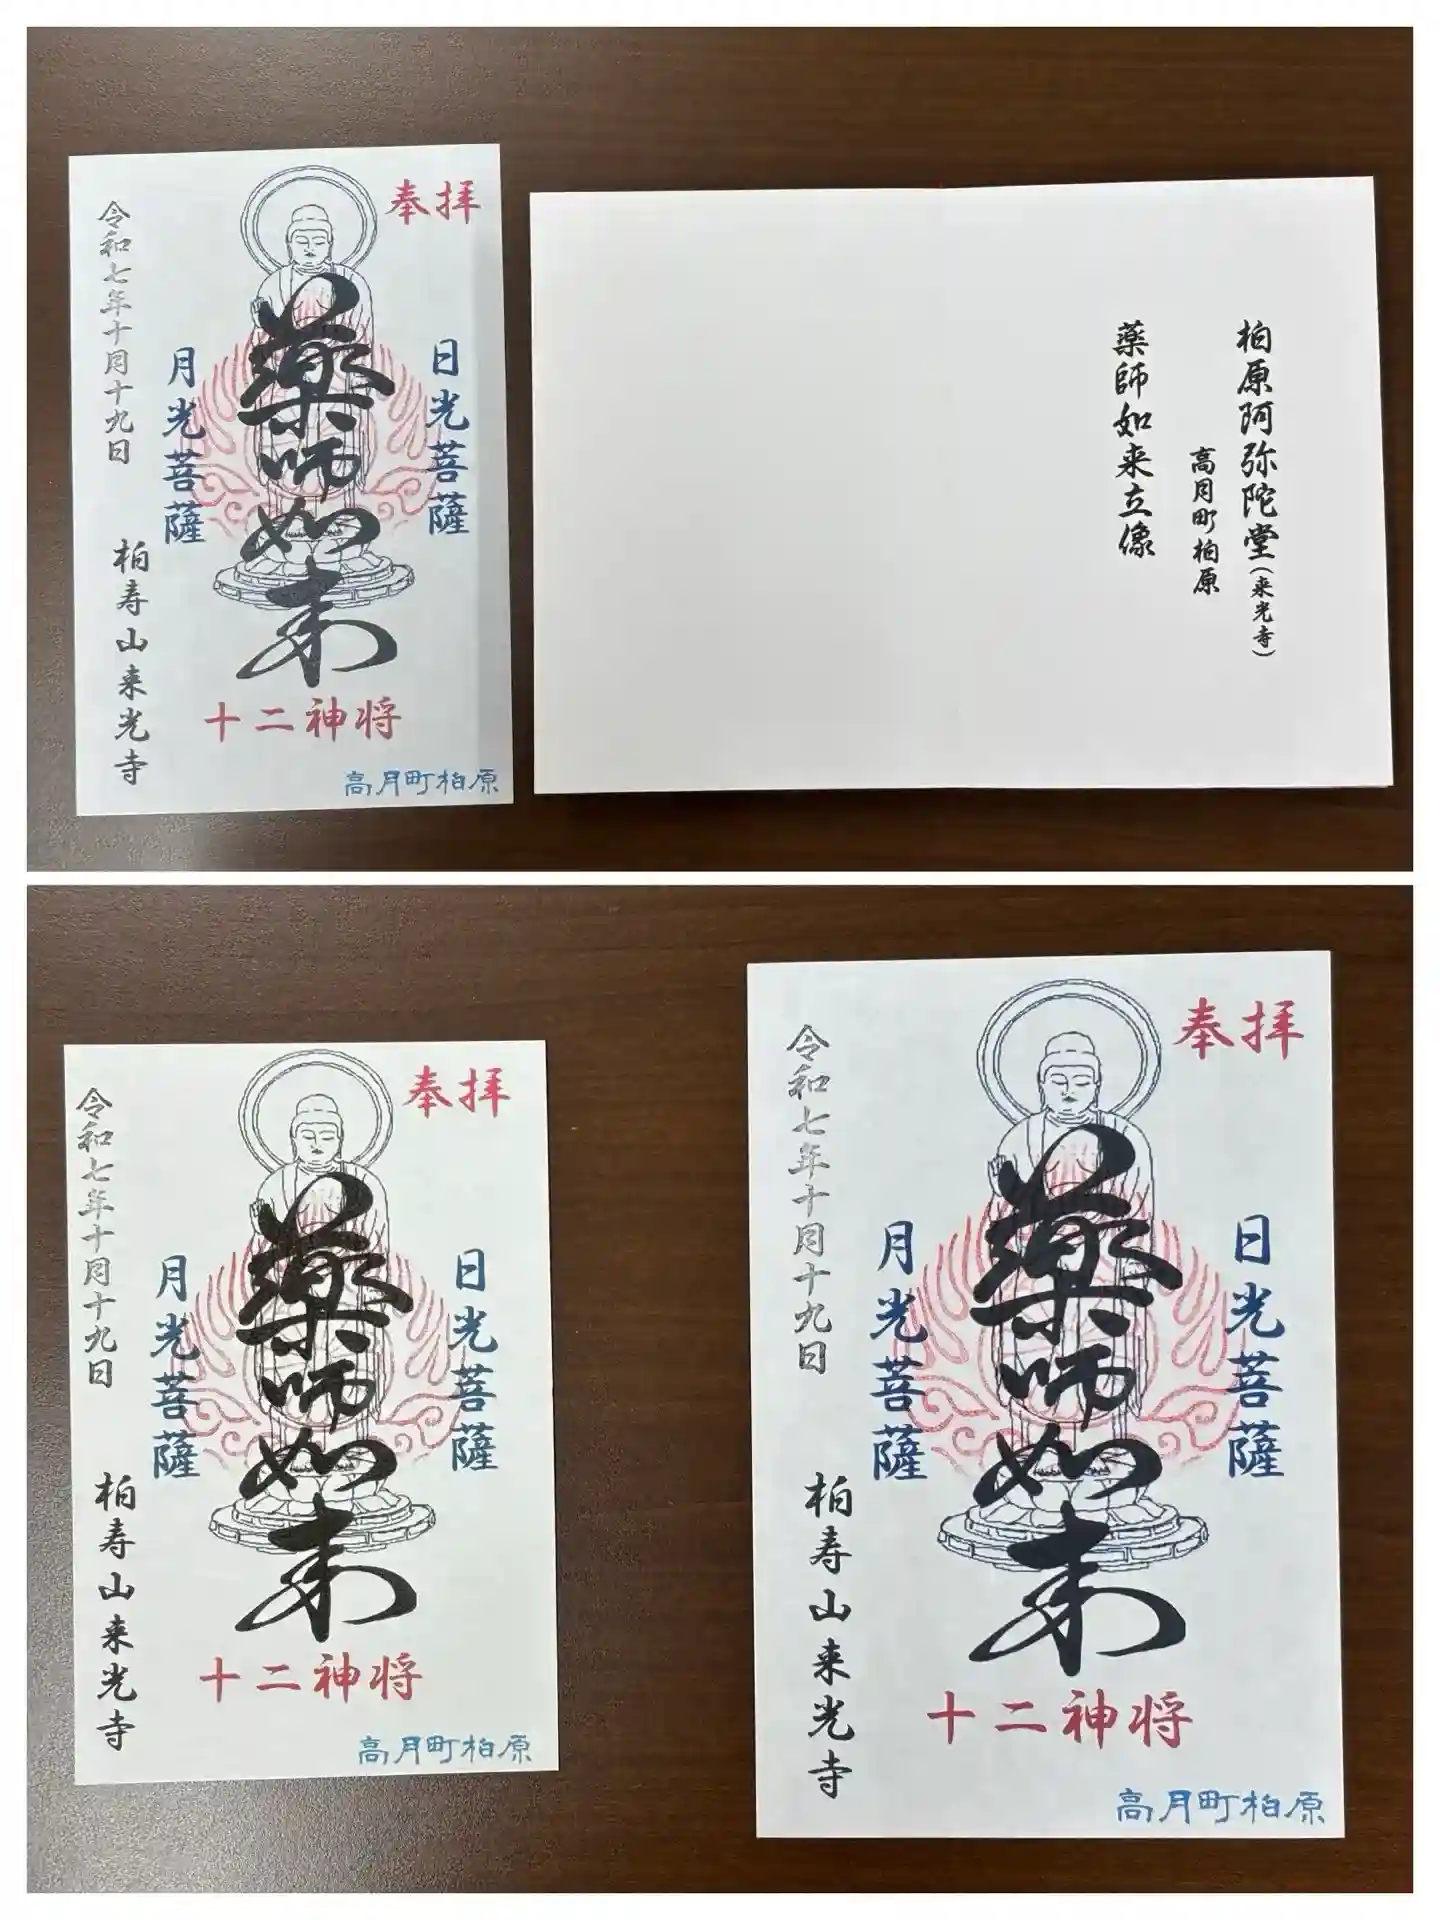 奉拝
日光菩薩
薬師如来
月光菩薩
十二神将
令和七年十月十九日
柏寿山来光寺
高月町柏原
柏原阿弥陀堂(来光寺)
高月町柏原
薬師如来立像
奉拝
日光菩薩
薬師如来
月光菩薩
十二神将
令和七年十月十九日
柏寿山来光寺
高月町柏原
奉拝
日光菩薩
薬師如来
月光菩薩
十二神将
令和七年十月十九日
柏寿山来光寺
高月町柏原